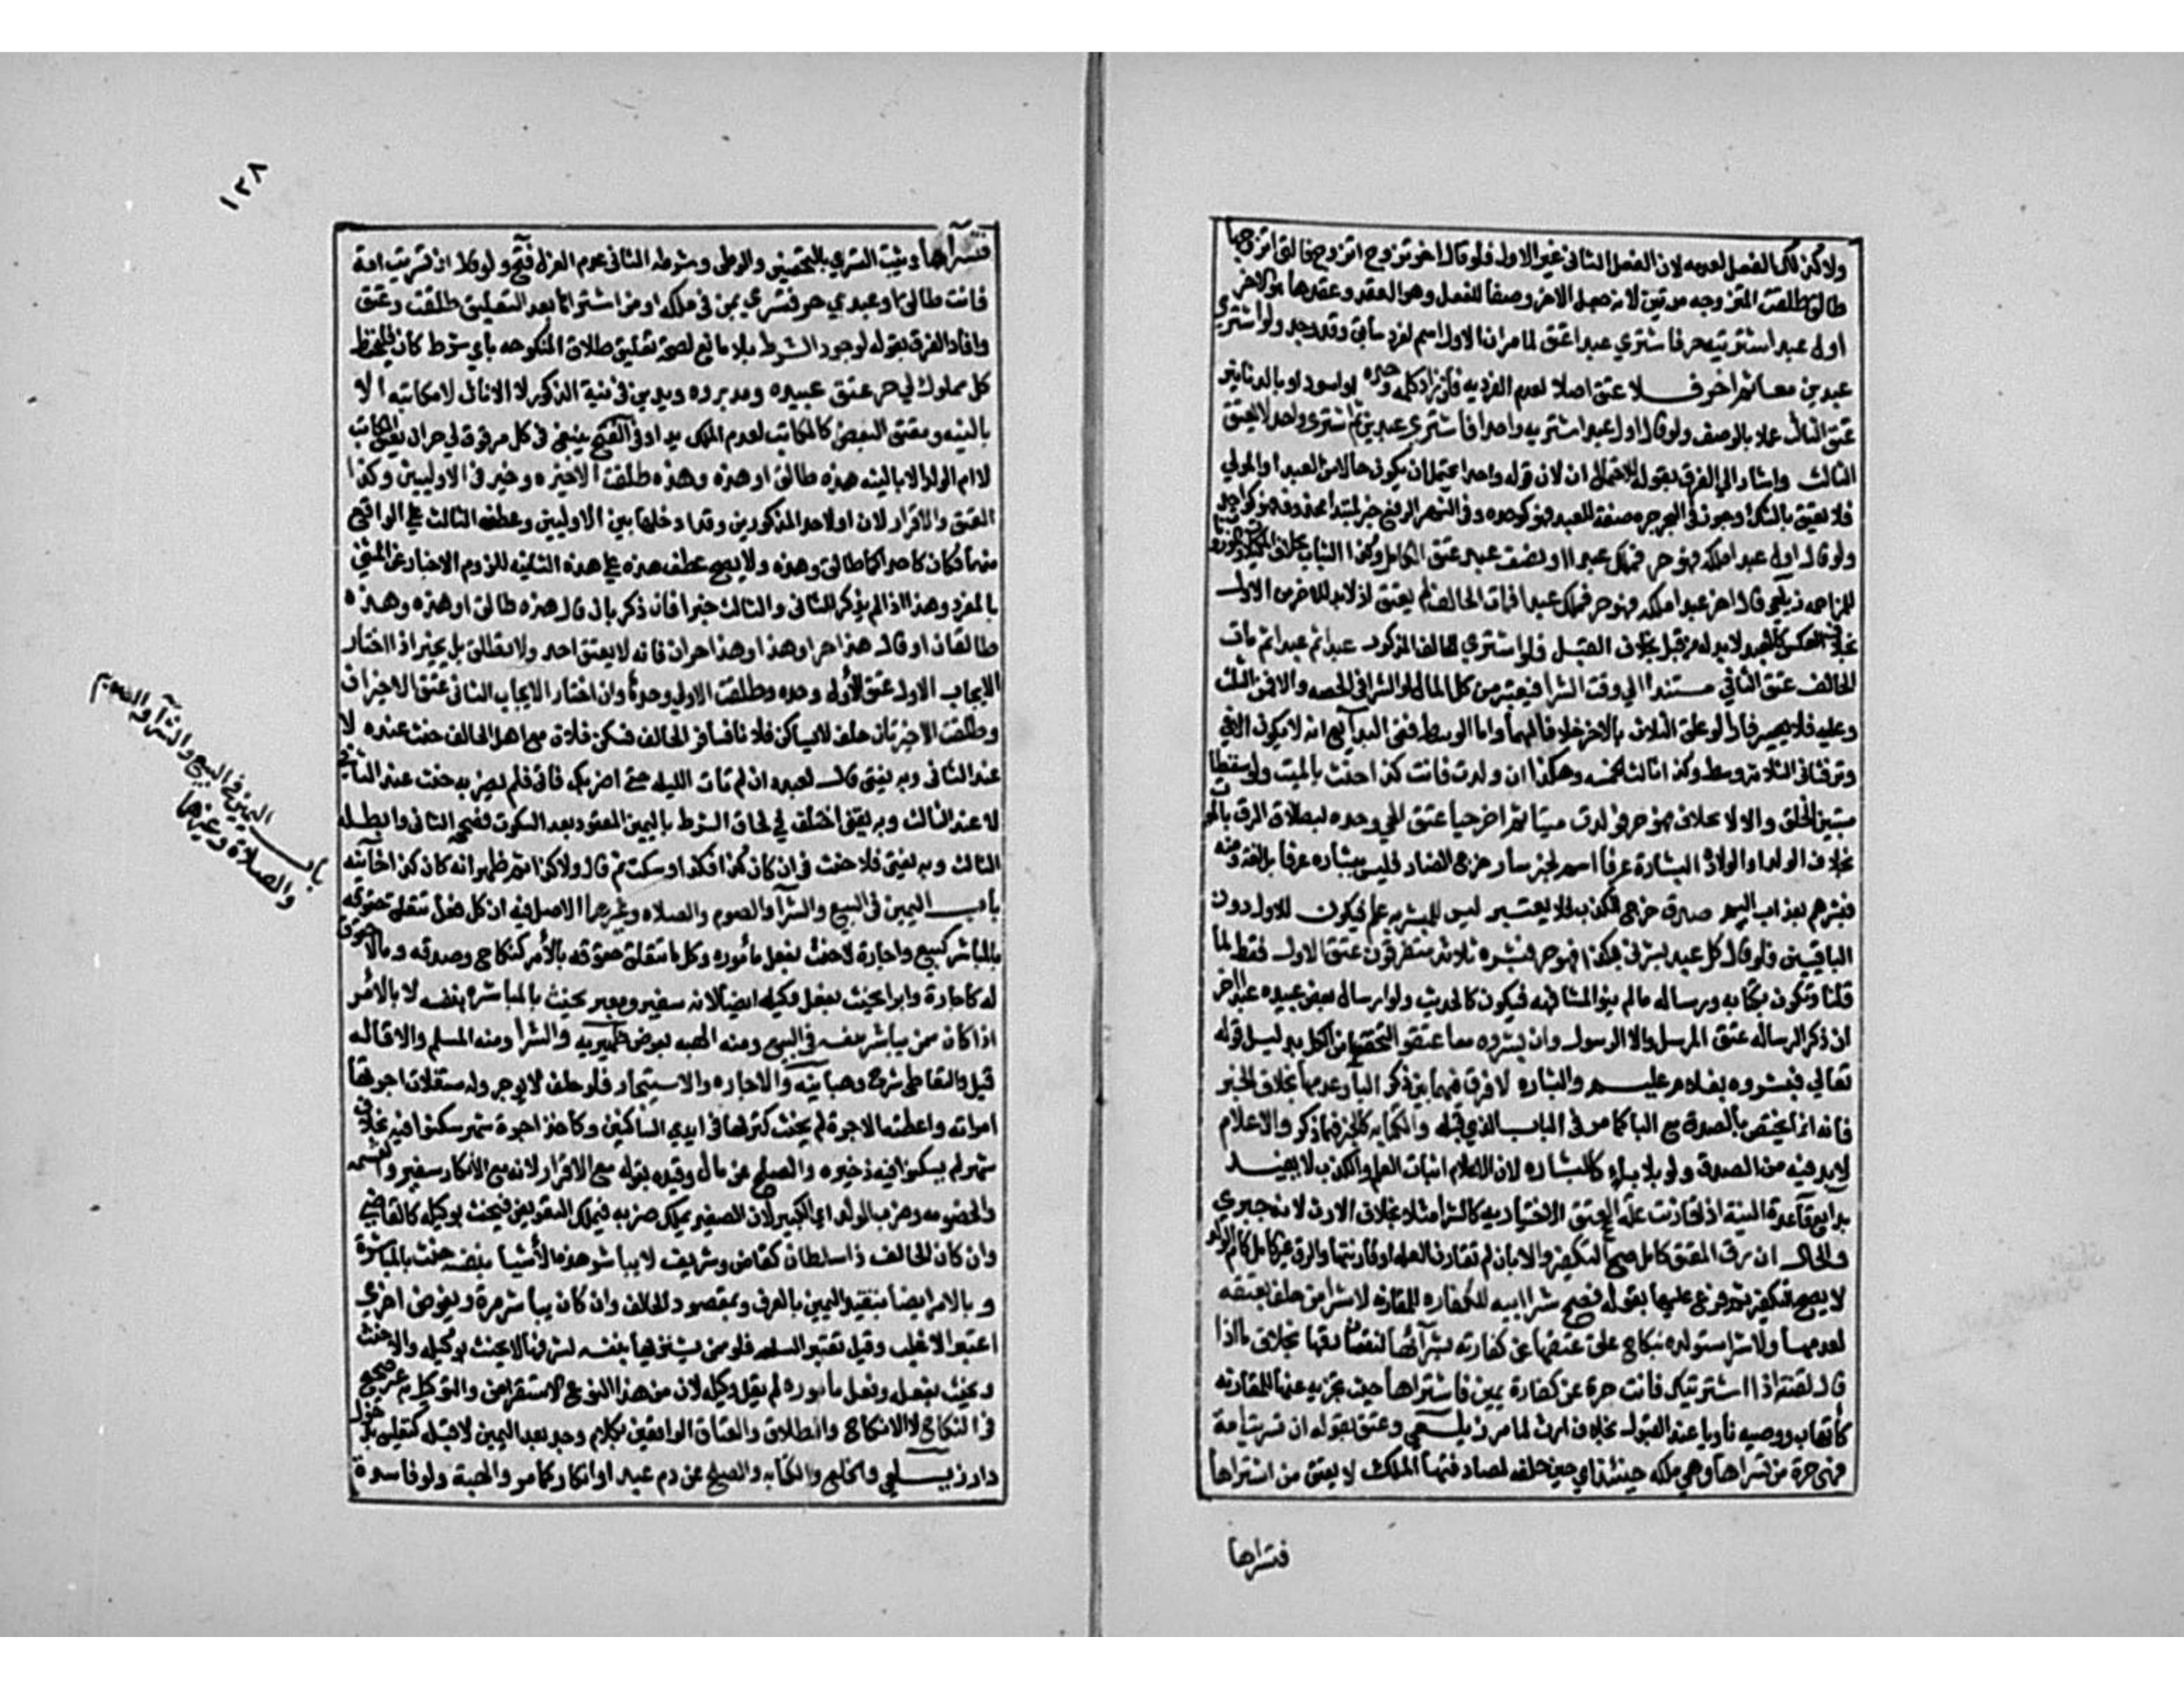 ولا كذلك الفعل لعدمه لان الفعل الثاني غير الاول فلو قال اخر تزوج اتزوج فالتي اتزوجها
طالق طلقت المتزوجه مرتين لانه جعل الاخر وصفا للفعل وهو العقد وعقدها هو الاخر
اول عبد اشتريه حر فاشتري عبدا عتق لما مر ان الاول اسم لفرد سابق وقد وجد ولو اشتري
عبدين معا ثم اخر فلا عتق اصلا لعدم الفرديه فان زاد كلمه وحده او اسود او بالدنانير
عتق الثالث عملا بالوصف ولو قال اول عبد اشتريه واحدا فاشتري عبدين ثم اشتري واحد لا يعتق
الثالث واشار الي الفرق بقوله للاحتمال ان لان قوله واحدا يحتمل ان يكون حالا من العبد او المولي
فلا يعتق بالشك
ولو قال اول عبد املكه فهو حر فملك عبدا ونصف عبد عتق الكامل وكذا الثياب
للمزاحمه زيلعي قال اخر عبد املكه فهو حر فملك عبدا فمات الحالف لم يعتق اذ لا بد للاخر من الاول
بخلاف العكس كالبعد لا بد له من قبل بخلاف القبل فلو اشتري الحالف المذكور عبدا ثم عبدا ثم مات
الحالف عتق الثاني مستندا الي وقت الشرا فيعتبر من كل المال لو الشرا في الصحه والا فمن الثلث
وعليه فلا يصير فارا لو علق الثلاث بالاخر خلافا لهما واما الوسط ففي البدايع انه لا يكون الا في
وتر فثاني الثلاثه وسط وكذا ثالث الخمسه وهكذا ان ولدت فانت كذا حنث بالميت ولو سقطا
مستبين الخلق والا لا بخلاف فهو حر فولدت ميتا ثم اخر حيا عتق الحي وحده لبطلان الرق بالموت
بخلاف الولد او الولادة البشارة عرفا اسم لخبر سار خرج الضار فليس ببشاره عرفا بل لغة ومنه
فبشرهم بعذاب اليم صدق خرج الكذب فلا يعتبر ليس للمبشر به علم فيكون للاول دون
الباقيين فلو قال كل عبد بشرني بكذا فهو حر فبشره ثلاثة متفرقون عتق الاول فقط لما
قلنا وتكون بكتابه ورساله ما لم ينو المشافهه فيكون كالحديث ولو ارسل بعض عبيده عبدا اخر
ان ذكر الرساله عتق المرسل والا الرسول وان بشروه معا عتقوا لتحققها من الكل بدليل قوله
تعالي فبشروه بغلام عليم والبشاره لا فرق فيها بين ذكر البا وعدمها بخلاف الخبر
فانه انما يختص بالصدق مع البا كما مر في الباب الذي قبله والكتابه كالخبر فيما ذكر والاعلام
لا بد فيه من الصدق ولو بلا با كالبشاره لان الاعلام اثبات العلم والكذب لا يفيد
بدايع قاعدة النية اذا قارنت علة العتق الاختياريه كالشرا مثلا بخلاف الارث لانه جبري
والحال ان رق المعتق كامل صح التكفير والا بان لم تقارن العله او قارنتها والرق غير كامل كام الولد
لا يصح التكفير ثم فرع عليها بقوله فصح شرا ابيه للكفاره للمقارنه لا شرا من حلف بعتقه
لعدمها ولا شرا مستولده بنكاح علق عتقها عن كفارته بشرائها لنقصان رقها بخلاف ما اذا
قال لقنة اذا اشتريتك فانت حرة عن كفارة يمين فاشتراها حيث تجزيه عنها للمقارنه
كاتهاب ووصيه ناويا عند القبول بخلاف ارث لما مر زيلعي وعتق بقوله ان تسريت امة
فهي حرة من تسراها وهي ملكه حينئذ اي حين حلفه لمصادفتها الملك لا يعتق من اشتراها
فتسراها
١٢٨
فتسراها ويثبت التسري بالتحصين والوطي وشرط الثاني عدم العزل فتح ولو قال ان تسريت امة
فانت طالق او عبدي حر فتسري بمن في ملكه او من اشتراها بعد التعليق طلقت وعتق
وافاد الفرق بقوله لوجود الشرط بلا مانع لصحة تعليق طلاق المنكوحه باي شرط كان فليحفظ
كل مملوك لي حر عتق عبيده ومدبروه ويدين في نية الذكور لا الاناث لا مكاتبه الا
بالنيه ومعتق البعض كالمكاتب لعدم الملك يدا وفي الفتح ينبغي في كل مرقوق لي حر ان يعتق المكاتب
لا ام الولد الا بالنيه هذه طالق او هذه وهذه طلقت الاخيره وخير في الاوليين وكذا
العتق والاقرار لان او لاحد المذكورين وقد ادخلها بين الاوليين وعطف الثالث علي الواقع
منهما فكان كاحداكما طالق وهذه ولا يصح عطف هذه علي هذه الثانيه للزوم الاخبار عن المثني
بالمفرد وهذا اذا لم يذكر للثاني والثالث خبرا فان ذكر بان قال هذه طالق او هذه وهذه
طالقان او قال هذا حر او هذا وهذا حران فانه لا يعتق احد ولا تطلق بل يخير اذا اختار
الايجاب الاول عتق الاول وحده وطلقت الاولي وحدها وان اختار الايجاب الثاني عتق الاخيران
وطلقت الاخيرتان حلف لا يساكن فلانا فسافر الحالف فسكن فلان مع اهل الحالف حنث عنده لا
عند الثاني وبه يفتي قال لعبده ان لم تات الليله حتي اضربك فاتي فلم يضربه حنث عند الثاني
لا عند الثالث وبه يفتي اختلف في لحاق الشرط باليمين المعقود بعد السكوت فصححه الثاني وابطله
الثالث وبه يفتي فلا حنث في ان كان كذا فكذا وسكت ثم قال ولا كذا ثم ظهر انه كان كذا خانيه
باب اليمين في البيع والشرا والصوم والصلاه وغيرها الاصل فيه ان كل فعل تتعلق حقوقه
بالمباشر كبيع واجارة لا حنث بفعل مأموره وكل ما تتعلق حقوقه بالآمر كنكاح وصدقه وما لا حقوق
له كاعارة وابرا يحنث بفعل وكيله ايضا لانه سفير ومعبر يحنث بالمباشره بنفسه لا بالامر
اذا كان ممن يباشر بنفسه في البيع ومنه الهبه بعوض ظهيريه والشرا ومنه السلم والاقاله
قيل والتعاطي شرح وهبانيه والاجاره والاستيجار فلو حلف لا يوجر وله مستغلات اجرتها
امراته واعطته الاجرة لم يحنث كتركها في ايدي الساكنين وكاخذ اجرة شهر سكنوا فيه بخلاف
شهر لم يسكنوا فيه ذخيره والصلح عن مال وقيده بقوله مع الاقرار لانه مع الانكار سفير والقسمه
والخصومه وضرب الولد اي الكبير لان الصغير يملك ضربه فيملك التفويض فيحنث بوكيله كالقاضي
وان كان الحالف ذا سلطان كقاض وشريف لا يباشر هذه الاشيا بنفسه حنث بالمباشرة
وبالامر ايضا لتقيد اليمين بالعرف وبمقصود الحالف وان كان يباشر مرة ويفوض اخري
اعتبر الاغلب وقيل تعتبر السلعه فلو ممن يشتريها بنفسه لشرفها لا يحنث بوكيله والا حنث
ويحنث بفعله وفعل مأموره لم يقل وكيله لان من هذا النوع الاستقراض والتوكيل به غير صحيح
في النكاح لا الانكاح والطلاق والعتاق الواقعين بكلام وجد بعد اليمين لا قبله كتعليق بدخول
دار زيلعي والخلع والكتابه والصلح عن دم عمد او انكار كما مر والهبة ولو فاسدة
باب اليمين في البيع والشرا والصوم
والصلاة وغيرها